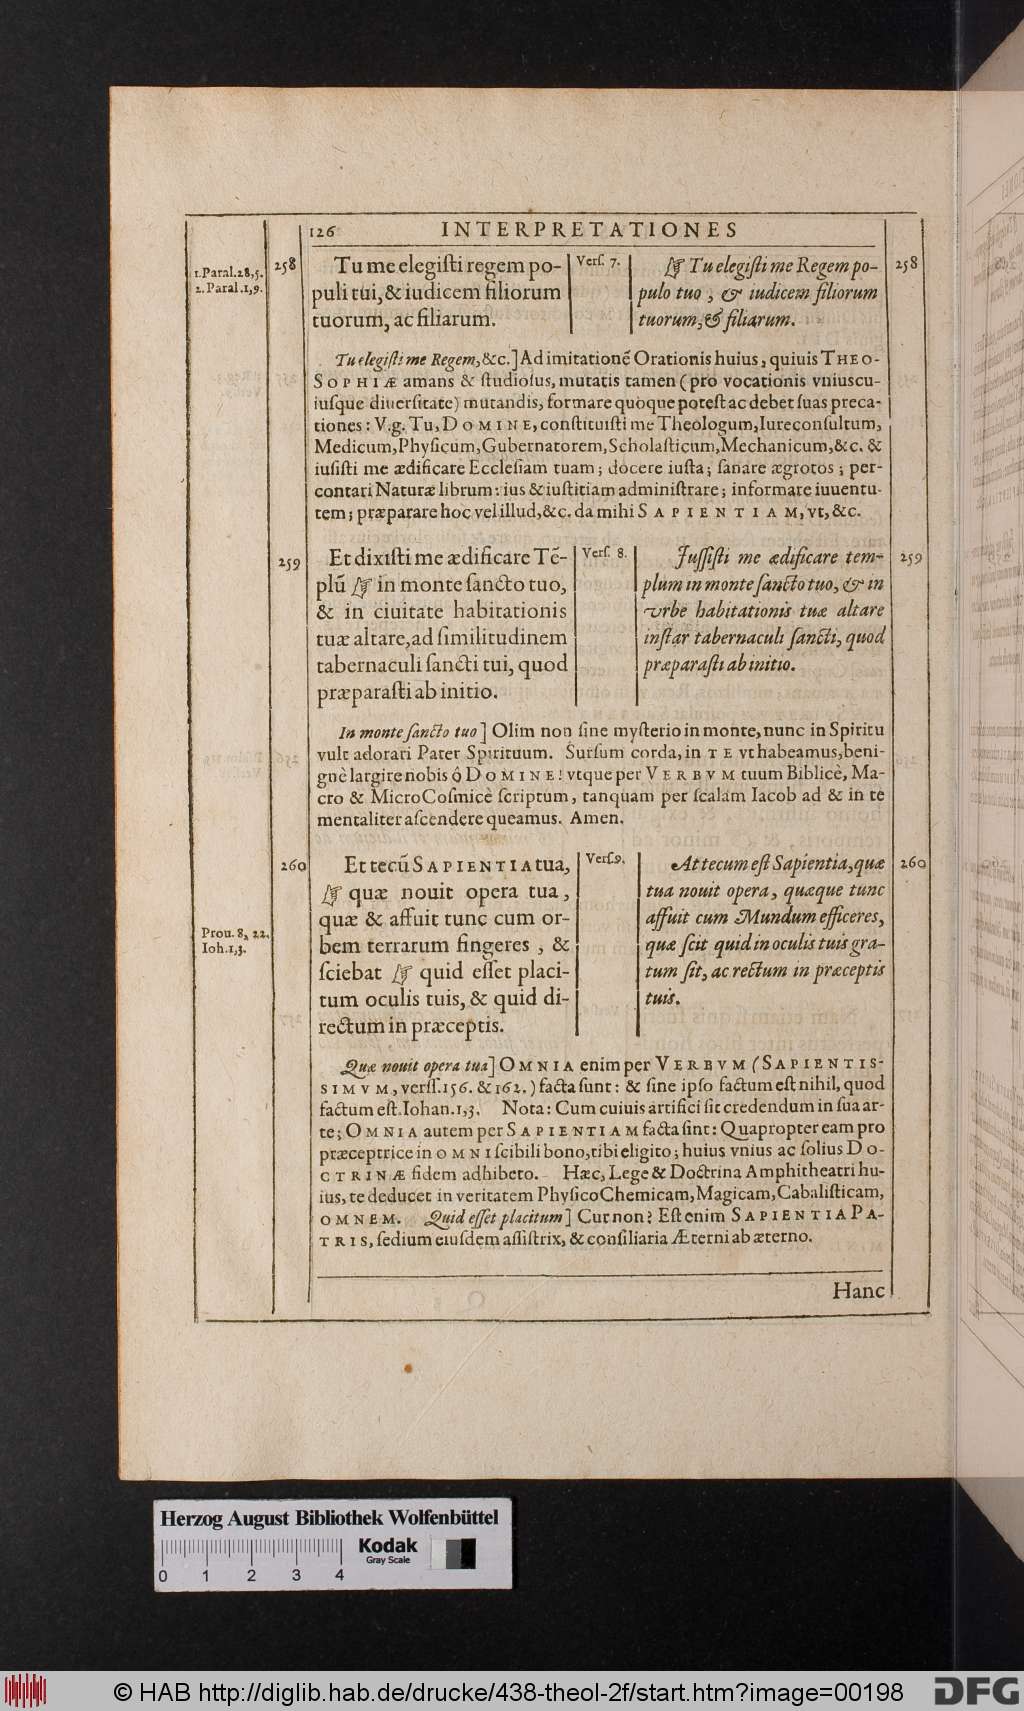 126 INTERPRETATIONES
1. Paral. 28, 5.
2. Paral. 1, 9.
258
Tu me elegisti regem po-
puli tui, & iudicem filiorum
tuorum, ac filiarum.
Vers. 7.
☞ Tu elegisti me Regem po-
pulo tuo, & iudicem filiorum
tuorum, & filiarum.
258
Tu elegisti me Regem, &c.] Ad imitationē Orationis huius, quiuis THEO-
SOPHIÆ amans & studiosus, mutatis tamen (pro vocationis vniuscu-
iusque diuersitate) mutandis, formare quoque potest ac debet suas preca-
tiones: V.g. Tu, DOMINE, constituisti me Theologum, Iureconsultum,
Medicum, Physicum, Gubernatorem, Scholasticum, Mechanicum, &c. &
iusisti me ædificare Ecclesiam tuam; docere iusta; sanare ægrotos; per-
contari Naturæ librum: ius & iustitiam administrare; informare iuuentu-
tem; præparare hoc vel illud, &c. da mihi SAPIENTIAM, vt, &c.
259
Et dixisti me ædificare Tē-
plū ☞ in monte sancto tuo,
& in ciuitate habitationis
tuæ altare, ad similitudinem
tabernaculi sancti tui, quod
præparasti ab initio.
Vers. 8.
Jussisti me ædificare tem-
plum in monte sancto tuo, & in
vrbe habitationis tuæ altare
instar tabernaculi sancti, quod
præparasti ab initio.
259
In monte sancto tuo] Olim non sine mysterio in monte, nunc in Spiritu
vult adorari Pater Spirituum. Sursum corda, in TE vt habeamus, beni-
gnè largire nobis ô DOMINE! vtque per VERBVM tuum Biblicè, Ma-
cro & MicroCosmicè scriptum, tanquam per scalam Iacob ad & in te
mentaliter ascendere queamus. Amen.
260
Et tecū SAPIENTIA tua,
☞ quæ nouit opera tua,
quæ & affuit tunc cum or-
bem terrarum fingeres, &
sciebat ☞ quid esset placi-
tum oculis tuis, & quid di-
rectum in præceptis.
Prou. 8, 22.
Ioh. 1, 3.
Vers. 9.
At tecum est Sapientia, quæ
tua nouit opera, quæque tunc
affuit cum Mundum efficeres,
quæ scit quid in oculis tuis gra-
tum sit, ac rectum in præceptis
tuis.
260
Quæ nouit opera tua] OMNIA enim per VERBVM (SAPIENTIS-
SIMVM, vers. 156. & 162.) facta sunt: & sine ipso factum est nihil, quod
factum est. Iohan. 1, 3. Nota: Cum cuiuis artifici sit credendum in sua ar-
te; OMNIA autem per SAPIENTIAM facta sint: Quapropter eam pro
præceptrice in OMNI scibili bono, tibi eligito; huius vnius ac solius DO-
CTRINÆ fidem adhibeto. Hæc, Lege & Doctrina Amphitheatri hu-
ius, te deducet in veritatem PhysicoChemicam, Magicam, Cabalisticam,
OMNEM. Quid esset placitum] Cur non? Est enim SAPIENTIA PA-
TRIS, sedium eiusdem assistrix, & consiliaria Æterni ab æterno.
Hanc
Herzog August Bibliothek Wolfenbüttel
Kodak
Gray Scale
0 1 2 3 4
© HAB http://diglib.hab.de/drucke/438-theol-2f/start.htm?image=00198
DFG